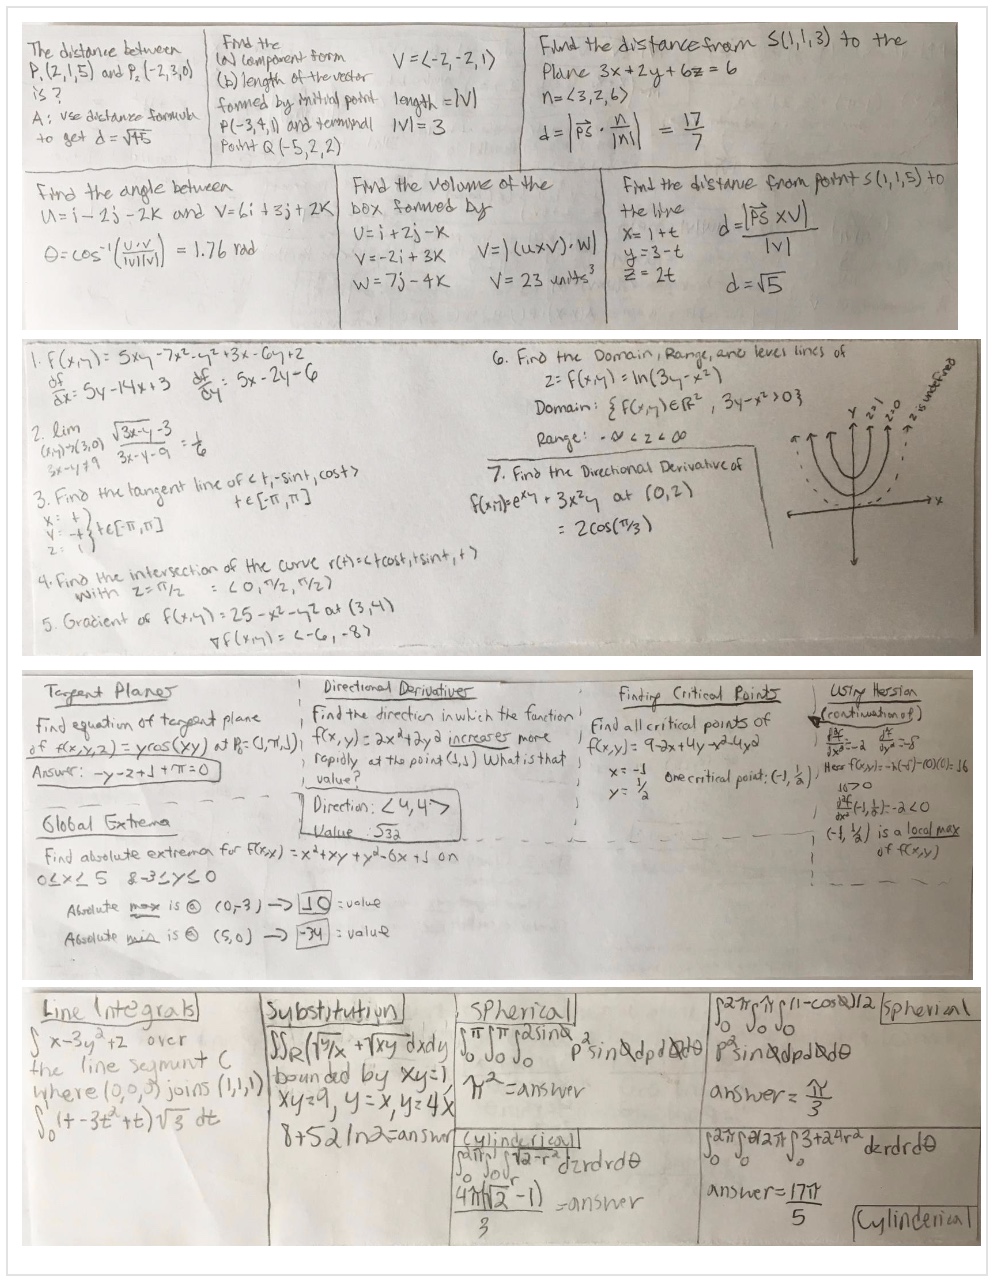 The distance between
P₁(2,1,5) and P₂(-2,3,0)
is?
A: use distance formula
to get d=√45
Find the
(a) component form
(b) length of the vector
formed by initial point
P(-3,4,1) and terminal
Point Q(-5,2,2)
V=<-2,-2,1>
length=|V|
|V|=3
Find the distance from S(1,1,3) to the
Plane 3x+2y+6z=6
n=<3,2,6>
d=|PS · n/|n|| = 17/7
Find the angle between
U=i-2j-2K and V=6i+3j+2K
θ=cos⁻¹(U·V/|U||V|) = 1.76 rad
Find the volume of the
box formed by
U=i+2j-K
V=-2i+3K
W=7j-4K
V=|(UxV)·W|
V=23 units³
Find the distance from point S(1,1,5) to
the line
x=1+t
y=3-t
z=2t
d=|PS XV|/|V|
d=√5
1. f(x,y)= 5xy-7x²-y²+3x-6y+2
df/dx= 5y-14x+3 df/dy= 5x-2y-6
2. lim √3x-y-3 / 3x-y-9 = 1/6
(x,y)→(3,0)
3x-y≠9
3. Find the tangent line of <t,-sint,cost>
t∈[-π,π]
x= t
y= -t } t∈[-π,π]
z= 1
4. Find the intersection of the curve r(t)=<tcost,tsint,t>
with z=π/2 = <0,π/2,π/2>
5. Gradient of f(x,y)=25-x²-y² at (3,4)
∇f(x,y)=<-6,-8>
6. Find the Domain, Range, and level lines of
z=f(x,y)=ln(3y-x²)
Domain: {f(x,y)∈R², 3y-x²>0}
Range: -∞<z<∞
7. Find the Directional Derivative of
f(x,y)=e^xy+3x²y at (0,2)
= 2cos(π/3)
Y
z=1
z=0
z is undefined
x
Tangent Planes
Find equation of tangent plane
of f(x,y,z)=ycos(xy) at P₀=(1,π,1)
Answer: -y-z+1+π=0
Directional Derivatives
Find the direction in which the function
f(x,y)=2x²+2y² increases more
rapidly at the point (1,1) What is that
value?
Direction: <4,4>
Value: √32
Finding Critical Points
Find all critical points of
f(x,y)=9-2x+4y-x²-4y²
x=-1
y=1/2
One critical point: (-1, 1/2)
Using Hersion
(continuation of)
d²f/dx²=-2 d²f/dy²=-8
Hess f(x,y)=-2(-8)-(0)(0)=16
16>0
d²f/dx²(-1,1/2)=-2<0
(-1,1/2) is a local max
of f(x,y)
Global Extrema
Find absolute extrema for f(x,x)=x²+xy+y²-6x+1 on
0≤x≤5 &-3≤y≤0
Absolute max is @ (0,-3) → 10 = value
Absolute min is @ (5,0) → -34 = value
Line Integrals
∫ x-3y²+z over
the line segment C
where (0,0,0) joins (1,1,1)
∫₀¹(t-3t²+t)√3 dt
Substitution
∫∫R(√y/x+√xy dxdy
bounded by xy=1,
xy=9, y=x, y=4x
8+52ln2=answer
Spherical
∫₀^π∫₀^π∫₀^2sinΦ ρ²sinΦdρdΦdθ
π²=answer
∫₀^2π∫₀^π∫₀^(1-cosΦ)/2 Spherical
ρ²sinΦdρdΦdθ
answer=π/3
Cylinderical
∫₀^2π∫₀^1∫r^√2-r² dzrdrdθ
4π(√2-1)/3 =answer
∫₀^2π∫₀^θ/2π∫₀^3+24r² dzrdrdθ
answer=17π/5
Cylinderical